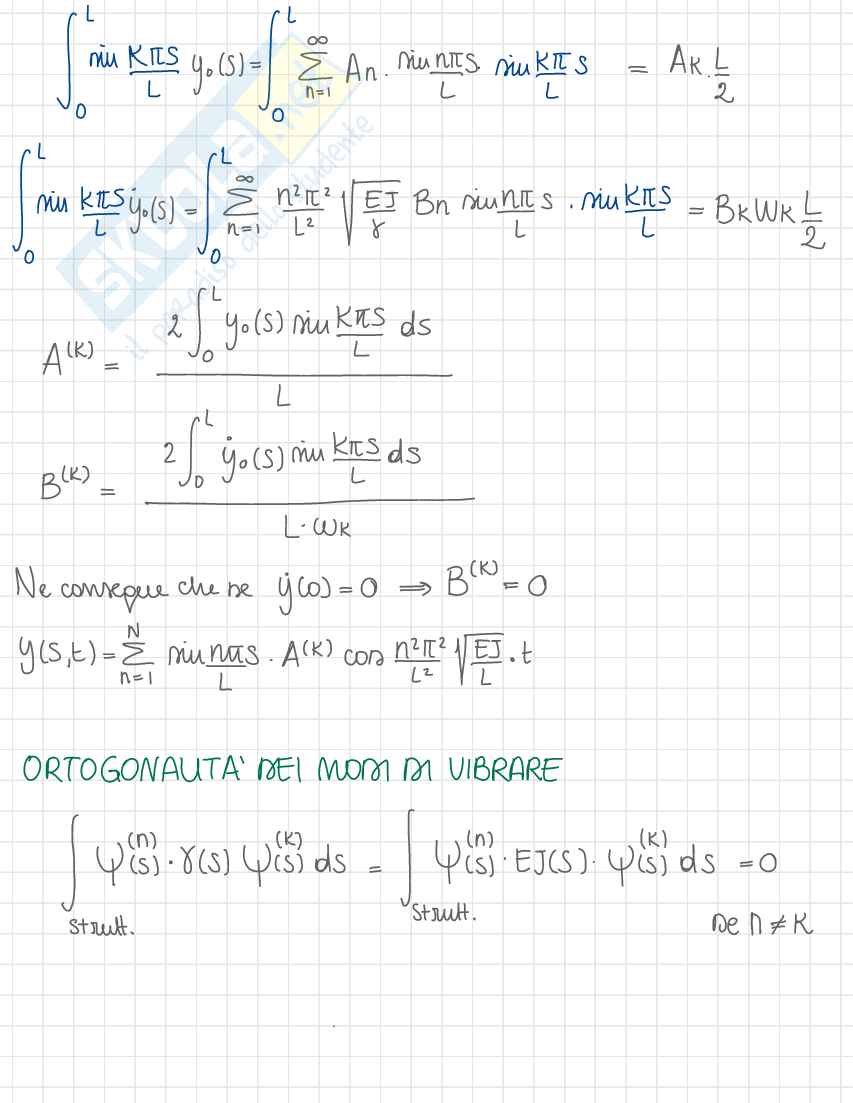 ∫₀ᴸ sin kπs/L y₀(s) = ∫₀ᴸ ∑_{n=1}^{∞} An · sin nπs/L sin kπ/L s = Ak · L/2
∫₀ᴸ sin kπs/L ẏ₀(s) = ∫₀ᴸ ∑_{n=1}^{∞} n²π²/L² √(EJ/γ) Bn sin nπ/L s · sin kπs/L = Bk Wk L/2
A^(k) = 2∫₀ᴸ y₀(s) sin kπs/L ds / L
B^(k) = 2∫₀ᴸ ẏ₀(s) sin kπs/L ds / L · ωk
Ne consegue che se ẏ(0) = 0 ⟹ B^(k) = 0
y(s,t) = ∑_{n=1}^{N} sin nπs/L · A^(k) cos n²π²/L² √(EJ/L) · t
ORTOGONALITA' DEI MODI DI VIBRARE
∫_{Strutt.} ψ^(n)(s) · γ(s) ψ^(k)(s) ds = ∫_{Strutt.} ψ^(n)(s) · EJ(s) · ψ^(k)(s) ds = 0
se n ≠ k
SKUOLA.net
il paradiso dello studente